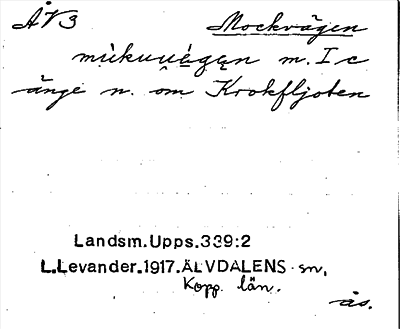 ÅV3 Mockvägen
mùkuvègęn m. I c
änge n. om Krokfljoten
Landsm.Upps.339:2
L.Levander.1917.ÄLVDALENS sn,
Kopp. län.
ås.